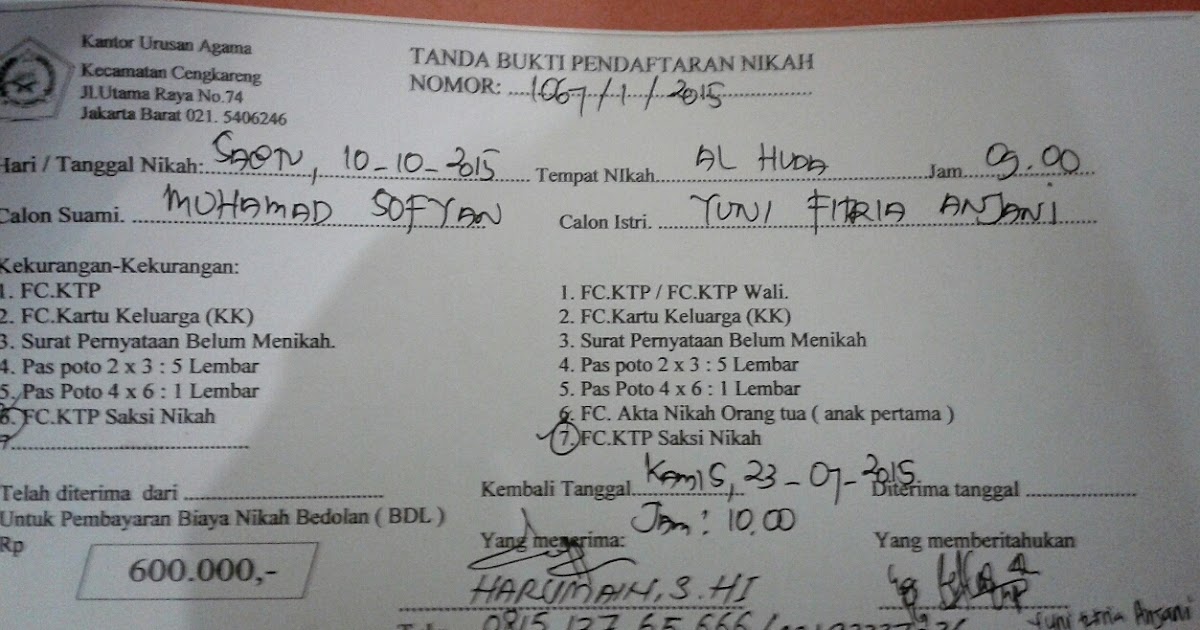 Kantor Urusan Agama
Kecamatan Cengkareng
Jl.Utama Raya No.74
Jakarta Barat 021. 5406246
TANDA BUKTI PENDAFTARAN NIKAH
NOMOR: 1067/1/2015
Hari / Tanggal Nikah: SABTU, 10-10-2015 Tempat NIkah AL HUDA Jam 09.00
Calon Suami. MUHAMAD SOFYAN Calon Istri. YUNI FITRIA ANJANI
Kekurangan-Kekurangan:
1. FC.KTP
2. FC.Kartu Keluarga (KK)
3. Surat Pernyataan Belum Menikah.
4. Pas poto 2 x 3 : 5 Lembar
5. Pas Poto 4 x 6 : 1 Lembar
6. FC.KTP Saksi Nikah
7.
1. FC.KTP / FC.KTP Wali.
2. FC.Kartu Keluarga (KK)
3. Surat Pernyataan Belum Menikah
4. Pas poto 2 x 3 : 5 Lembar
5. Pas Poto 4 x 6 : 1 Lembar
6. FC. Akta Nikah Orang tua ( anak pertama )
7. FC.KTP Saksi Nikah
Telah diterima dari Kembali Tanggal KAMIS, 23-07-2015 Diterima tanggal
Untuk Pembayaran Biaya Nikah Bedolan ( BDL ) Jam : 10.00
Rp 600.000,-
Yang menerima: Yang memberitahukan
HARUMAIN, S.HI
0815 127 65 666 / Yuni Anjani